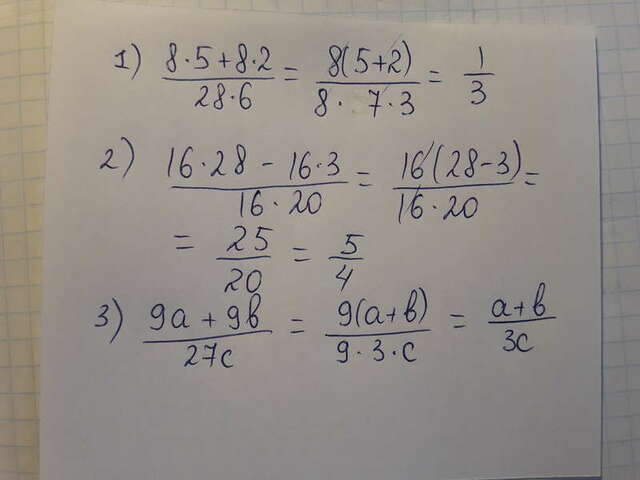 1) (8·5+8·2)/(28·6) = 8(5+2)/(8·7·3) = 1/3
2) (16·28 - 16·3)/(16·20) = 16(28-3)/(16·20) =
= 25/20 = 5/4
3) (9a + 9b)/(27c) = 9(a+b)/(9·3·c) = (a+b)/(3c)